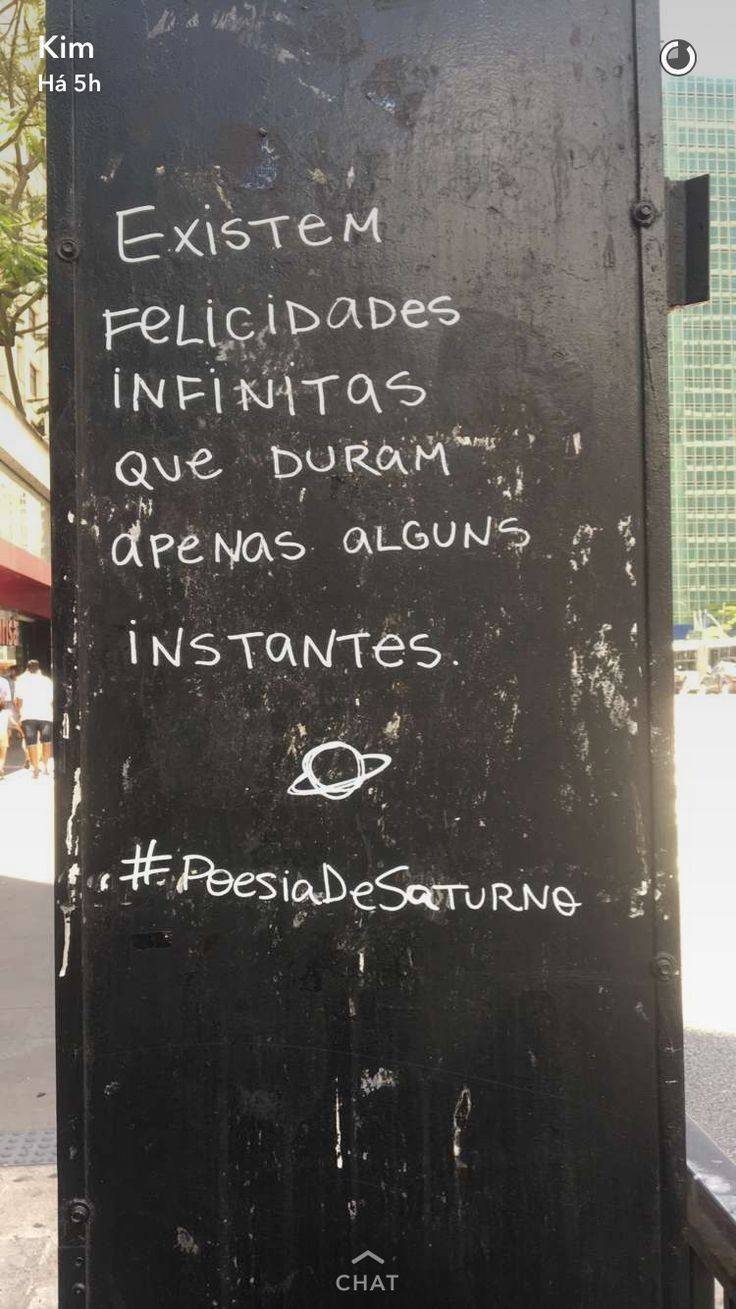 Kim
Há 5h
Existem
Felicidades
infinitas
que duram
apenas alguns
instantes.
#PoesiaDeSaturno
CHAT